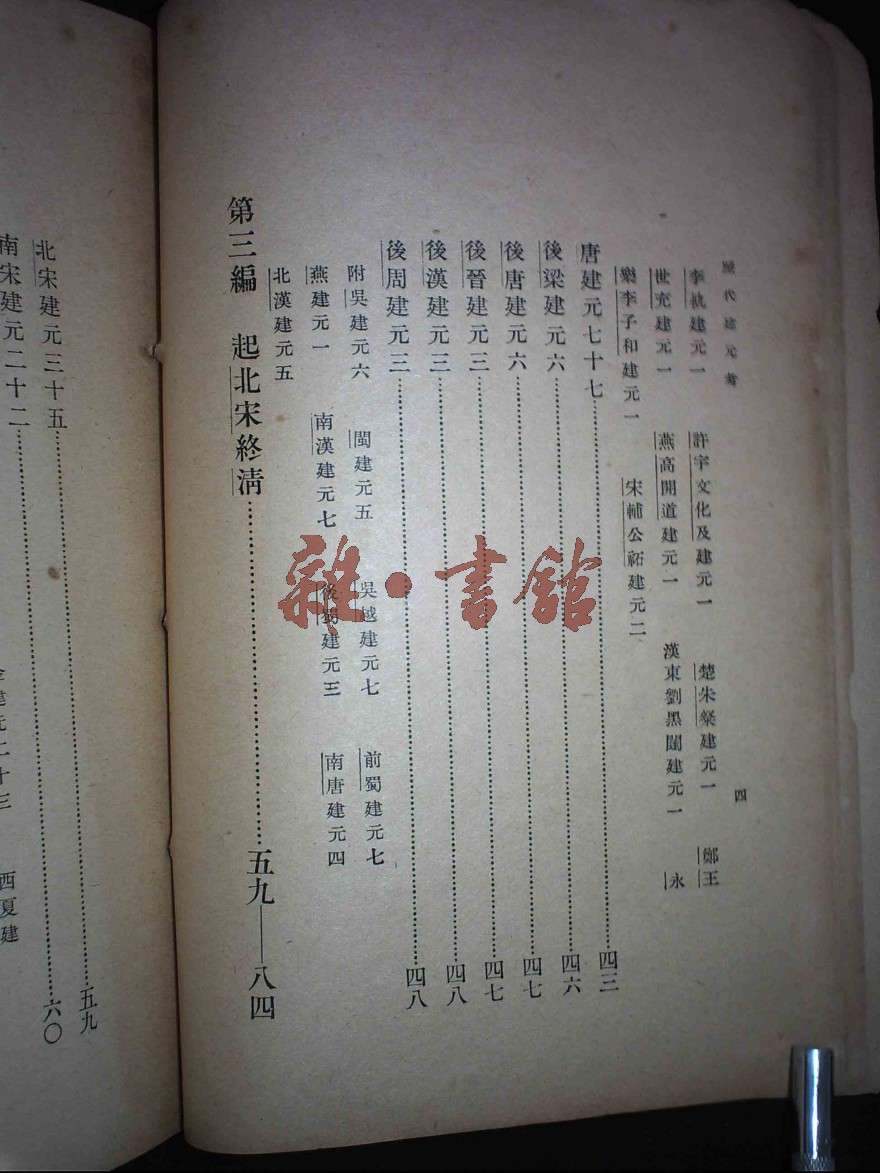 歷代建元考
四
李軌建元一　許宇文化及建元一　楚朱粲建元一　鄭王
世充建元一　燕高開道建元一　漢東劉黑闥建元一　永
樂李子和建元一　宋輔公祏建元二
唐建元七十七……四三
後梁建元六……四六
後唐建元六……四七
後晉建元三……四七
後漢建元三……四八
後周建元三……四八
附吳建元六　閩建元五　吳越建元七　前蜀建元七
燕建元一　南漢建元七　後蜀建元三　南唐建元四
北漢建元五
第三編　起北宋終淸……五九——八四
北宋建元三十五……五九
南宋建元二十二……六〇
西夏建
雜·書館